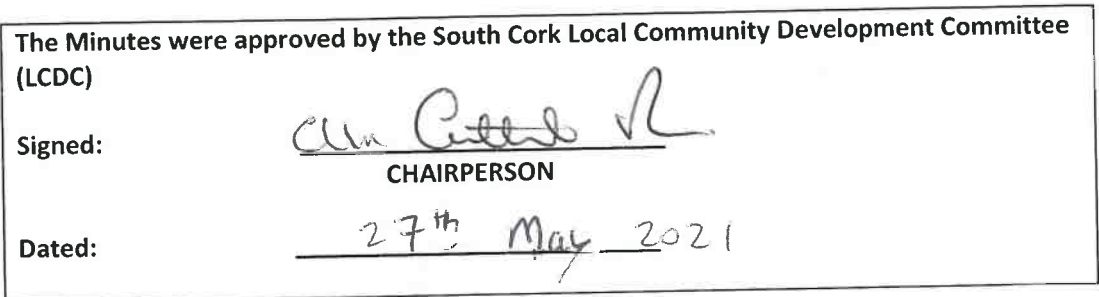 The Minutes were approved by the South Cork Local Community Development Committee
(LCDC)
Signed:
CHAIRPERSON
Dated: 27th May 2021